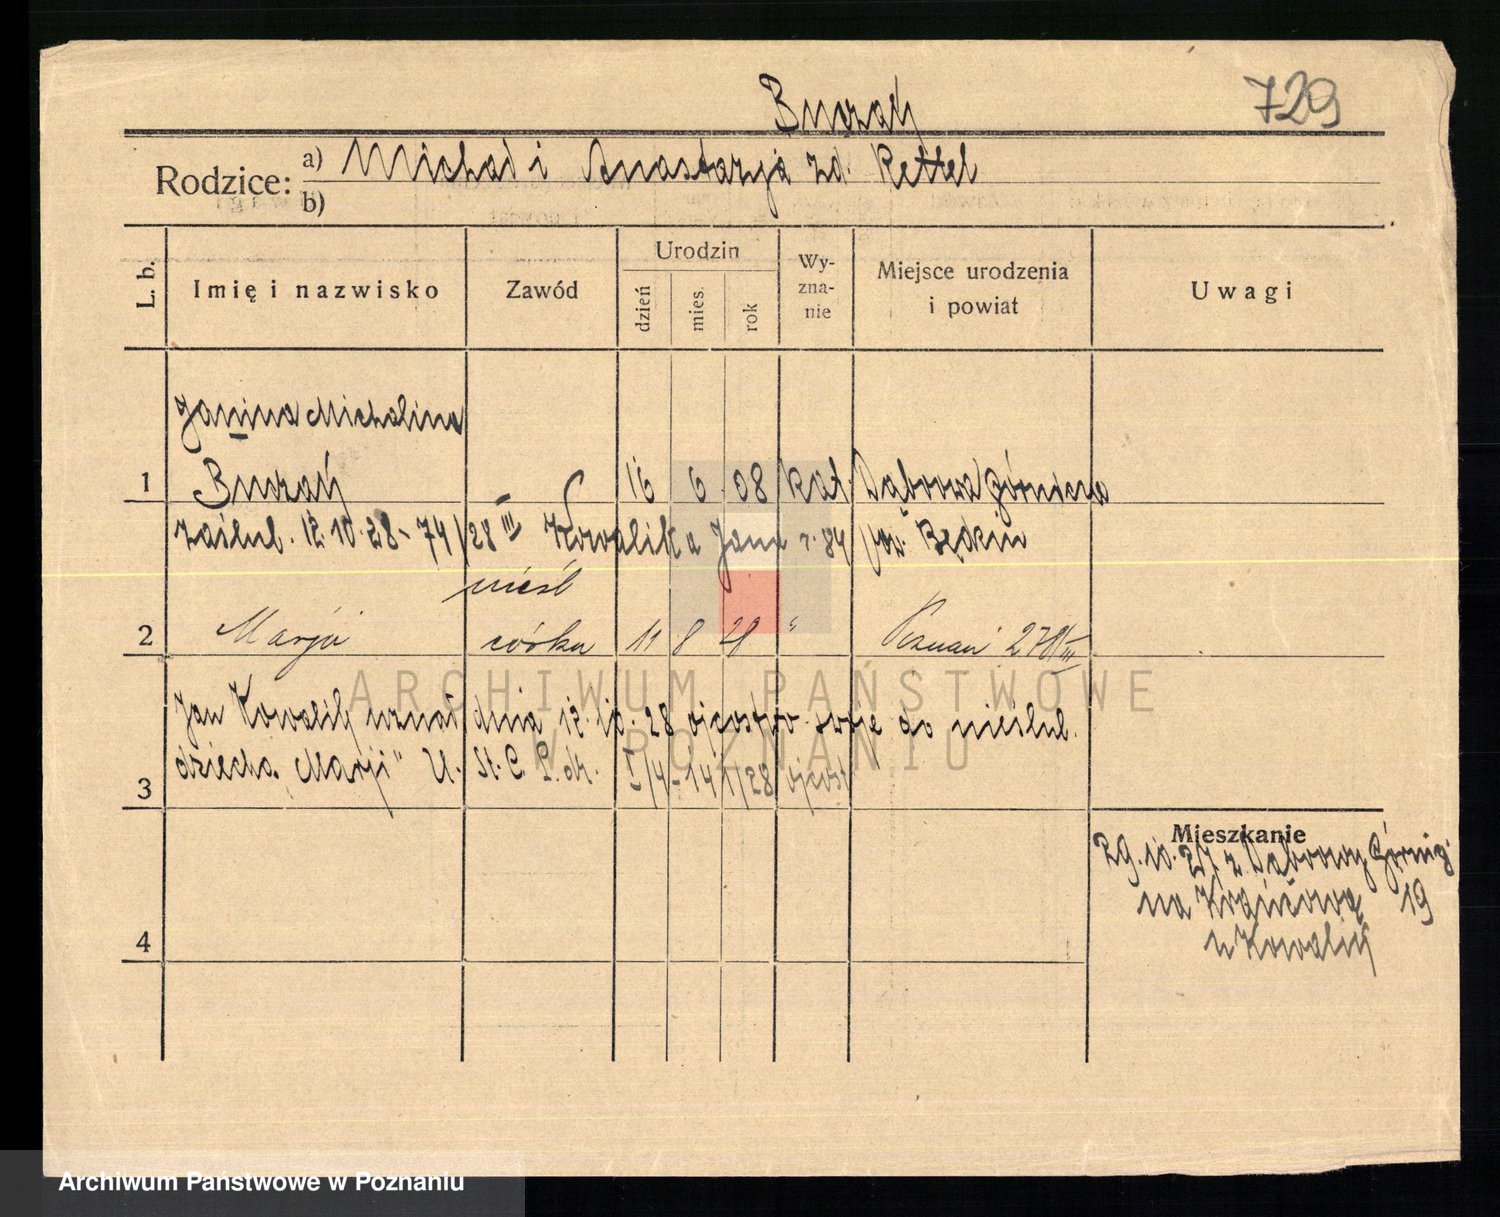 Burzań
729
Rodzice: a) Michał i Anastazja zd. Rettel
b)
L. b.
Imię i nazwisko
Zawód
Urodzin
dzień
mies.
rok
Wy-
zna-
nie
Miejsce urodzenia
i powiat
Uwagi
Janina Michalina
1 Burzań 16 6 08 kat. Dąbrowa Górnicza
zaślub. 12.10.28 - 74/28 III Kowalika Jana r. 84 pow. Będzin
nieśl
2 Marja córka 11 8 28 " Poznań 278/III
Jan Kowalik uznał dnia 12.10.28 ojcostwo swoje do nieślub.
dziecka "Marji" U. St. C. P. I/4-141/28 ojcost
3
Mieszkanie
29.10.27. z Dąbrowy Górnicz.
na Krańcową 19
u Kowalik
4
ARCHIWUM PAŃSTWOWE
W POZNANIU
Archiwum Państwowe w Poznaniu